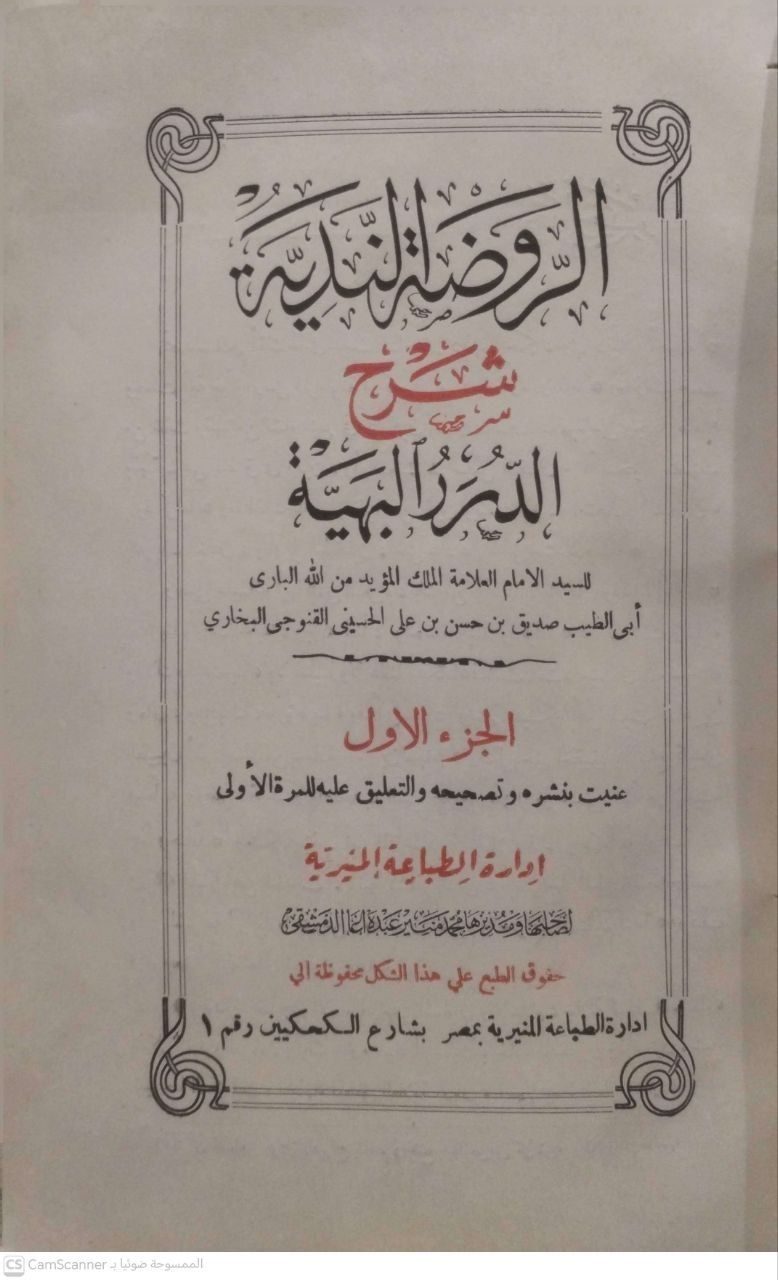 الرَّوضَةُ النَّدِيَّة
شَرْح
الدُّرَرُ البَهِيَّة
للسيد الامام العلامة الملك المؤيد من الله البارى
أبى الطيب صديق بن حسن بن على الحسينى القنوجى البخاري
الجزء الاول
عنيت بنشره وتصحيحه والتعليق عليه للمرة الأولى
إدارة الطباعة المنيرية
لصاحبها ومديرها محمد منير عبده أغا الدمشقى
حقوق الطبع علي هذا الشكل محفوظة الي
ادارة الطباعة المنيرية بمصر بشارع الكحكيين رقم ١
CS CamScanner الممسوحة ضوئيا بـ